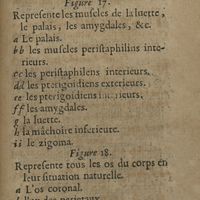 Figure 17.
Represente les muscles de la luette,
le palais, les amygdales, &c.
a Le palais.
bb les muscles peristaphilins inte-
rieurs.
cc les peristaphilens interieurs.
dd les pterigoidiens exterieurs.
ee les pterigoidiens interieurs.
ff les amygdales.
g la luette.
h la mâchoire inferieure.
ii le zigoma.
Figure 18.
Represente tous les os du corps en
leur situation naturelle.
a L'os coronal.